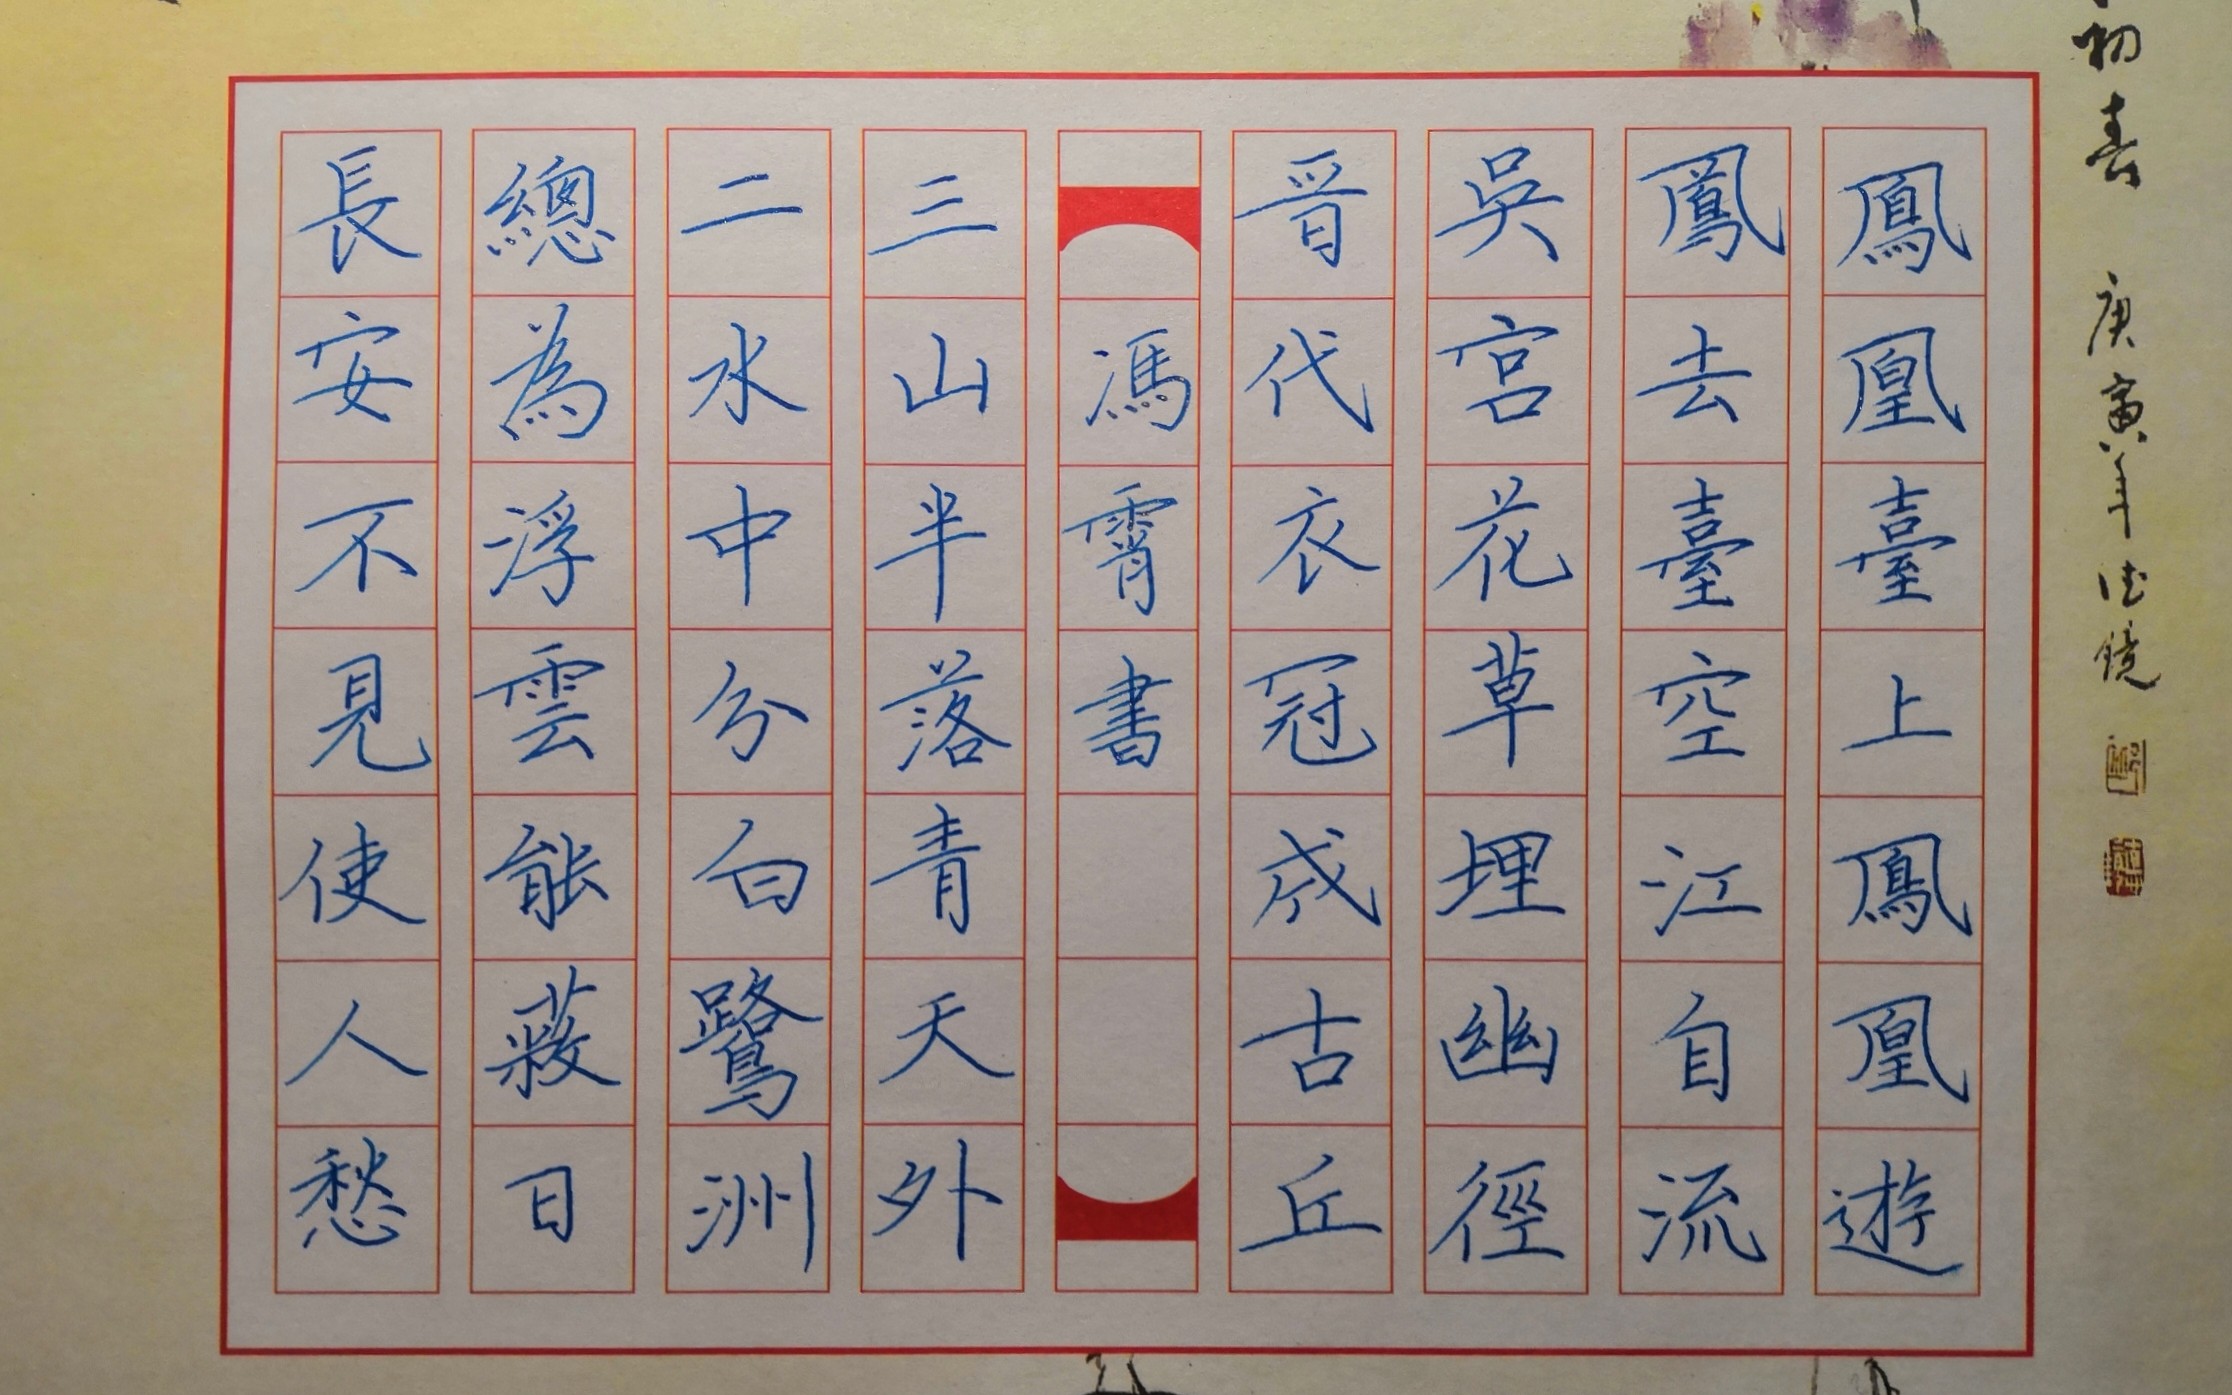 初春 庚寅年德鏡
鳳凰臺上鳳凰遊
鳳去臺空江自流
吳宮花草埋幽徑
晉代衣冠成古丘
馮霄書
三山半落青天外
二水中分白鷺洲
總為浮雲能蔽日
長安不見使人愁